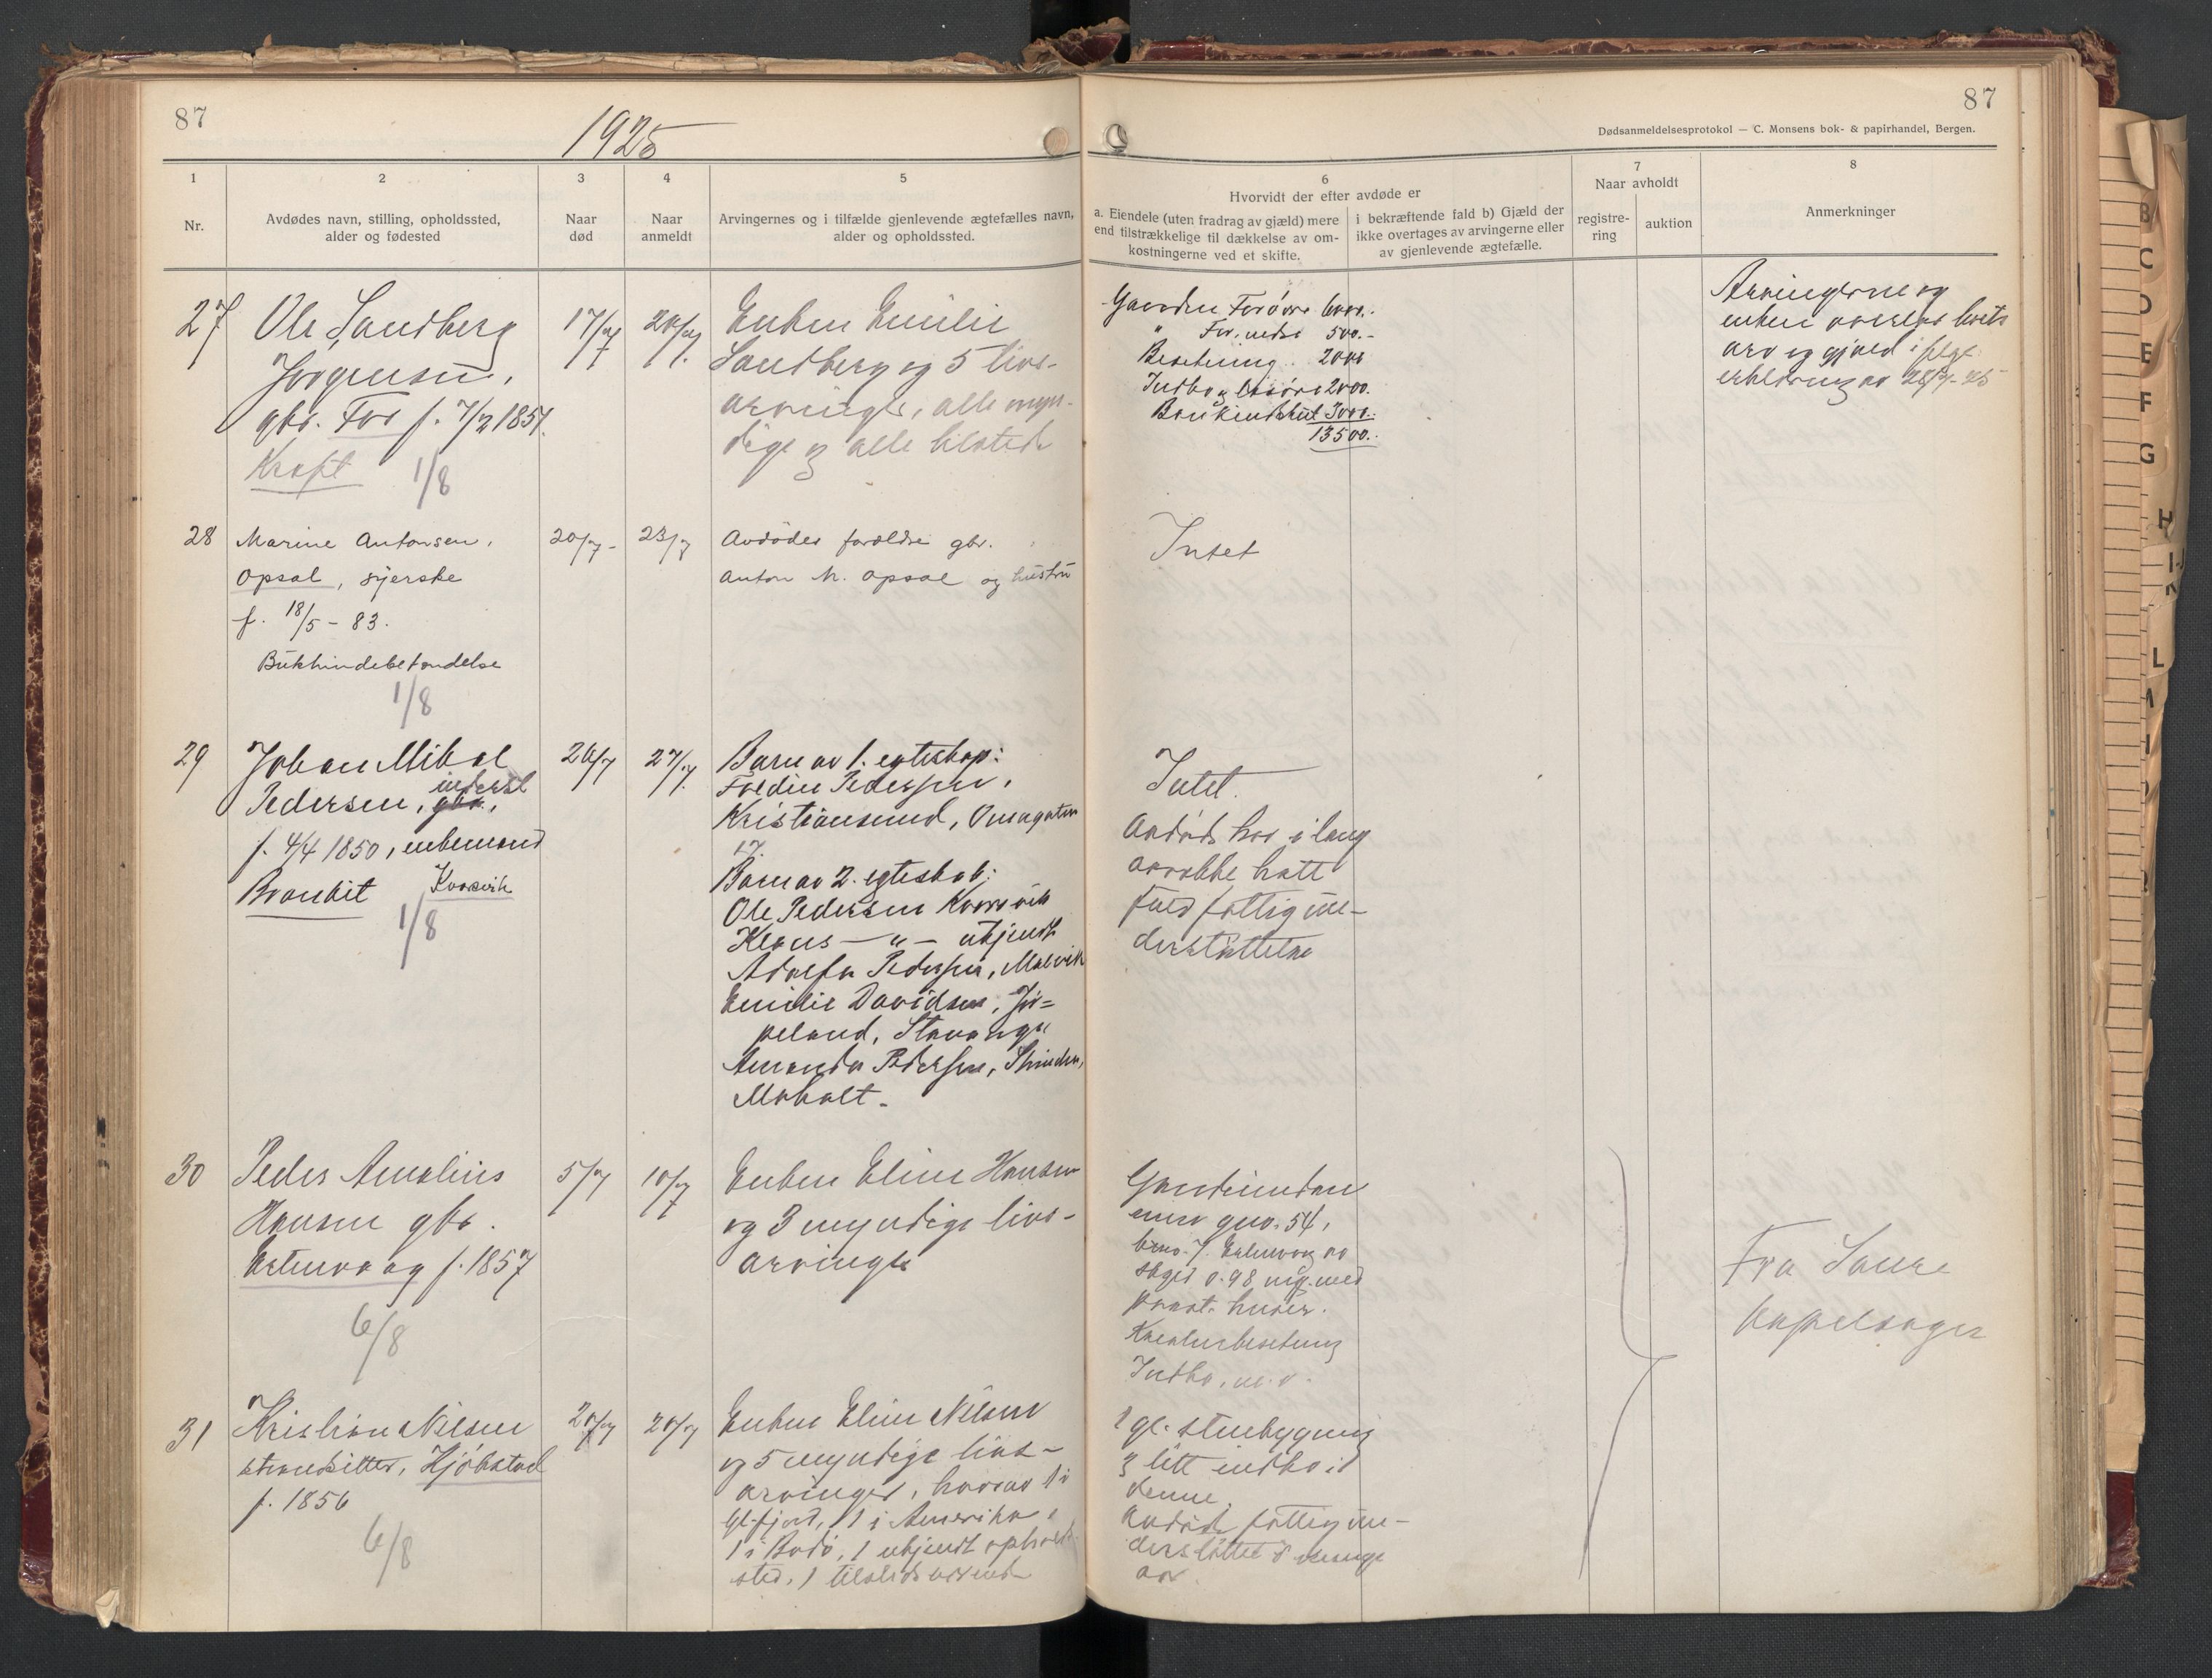 87
1925
87
Dødsanmeldelsesprotokol — C. Monsens bok- & papirhandel, Bergen.
1
2
3
4
5
6
7
8
Nr.
Avdødes navn, stilling, opholdssted,
alder og fødested
Naar
død
Naar
anmeldt
Arvingernes og i tilfælde gjenlevende ægtefælles navn,
alder og opholdssted.
Hvorvidt der efter avdøde er
a. Eiendele (uten fradrag av gjæld) mere
end tilstrækkelige til dækkelse av om-
kostningerne ved et skifte.
i bekræftende fald b) Gjæld der
ikke overtages av arvingerne eller
av gjenlevende ægtefælle.
Naar avholdt
registre-
ring
auktion
Anmerkninger
27
Ole Sandberg
Jørgensen,
gbr. For f. 7/2 1851.
Kræft 1/8
17/7
20/7
Enken Emilie
Sandberg og 5 livs-
arvinger, alle myn-
dige og alle tilstede
Gaarden Forøvre 6000.-
" For, nedre 500.-
Besetning .. 2000
Indbo og løsøre 2000.
Bankindskud 3000.-
13500.-
Arvingerne og
enken overtar boets
arv og gjæld ifølge
erklæring av 28/7-25
28
Marine Antonsen,
Opsal, syerske
f. 18/5 - 83.
Bukhindebetændelse
1/8
20/7-
23/7
Avdødes forældre gbr.
Anton M. Opsal og hustru
Intet
29
Johan Mikal
inderst
Pedersen, gbr.,
f. 4/4 1850, enkemand
Brandkit Kvasvik
1/8
26/7
27/7
Barn av 1. egteskap:
Fredin Pedersen,
Kristiansund,
17.
Barn av 2. egteskab:
Ole Pedersen Korsvik
Klaus — " — ukjendt
Adolfa Pedersen, Malvik
Emilie Davidsen, Jør-
peland, Stavanger
Amanda Pedersen, Strinden,
Moholt.
Intet.
Avdøde har i lang
aarrække hatt
fuld fattigun-
derstøttelse
30
Peder Amalius
Hansen gbr.
Estenvaag f. 1857
6/8
5/7
10/7
Enken Eline Hansen
og 3 myndige livs-
arvinger
Gaardeiendom
gno. 54,
bno. 7. Estenvaag av
skyld 0.98 mg. med
paast. huser.
Kreaturbesetning
Indbo, m.v.
Fra Saure
kapelsogn
31
Kristian Nilsen
strandsitter, Kjøbstad
f. 1856
6/8
20/7
20/7
Enken Eline Nilsen
og 5 myndige livs-
arvinger, hvorav 1 i
Gl.fjord, 1 i Amerika,
1 i Bodø, 1 ukjendt opholds-
sted, 1 tilstedeværende
1 gl. stuebygning
og litt indbo i
denne.
Avdøde fattigun-
derstøttet i mange
aar.
B
C
D
E
F
G
H
I-J
K
L